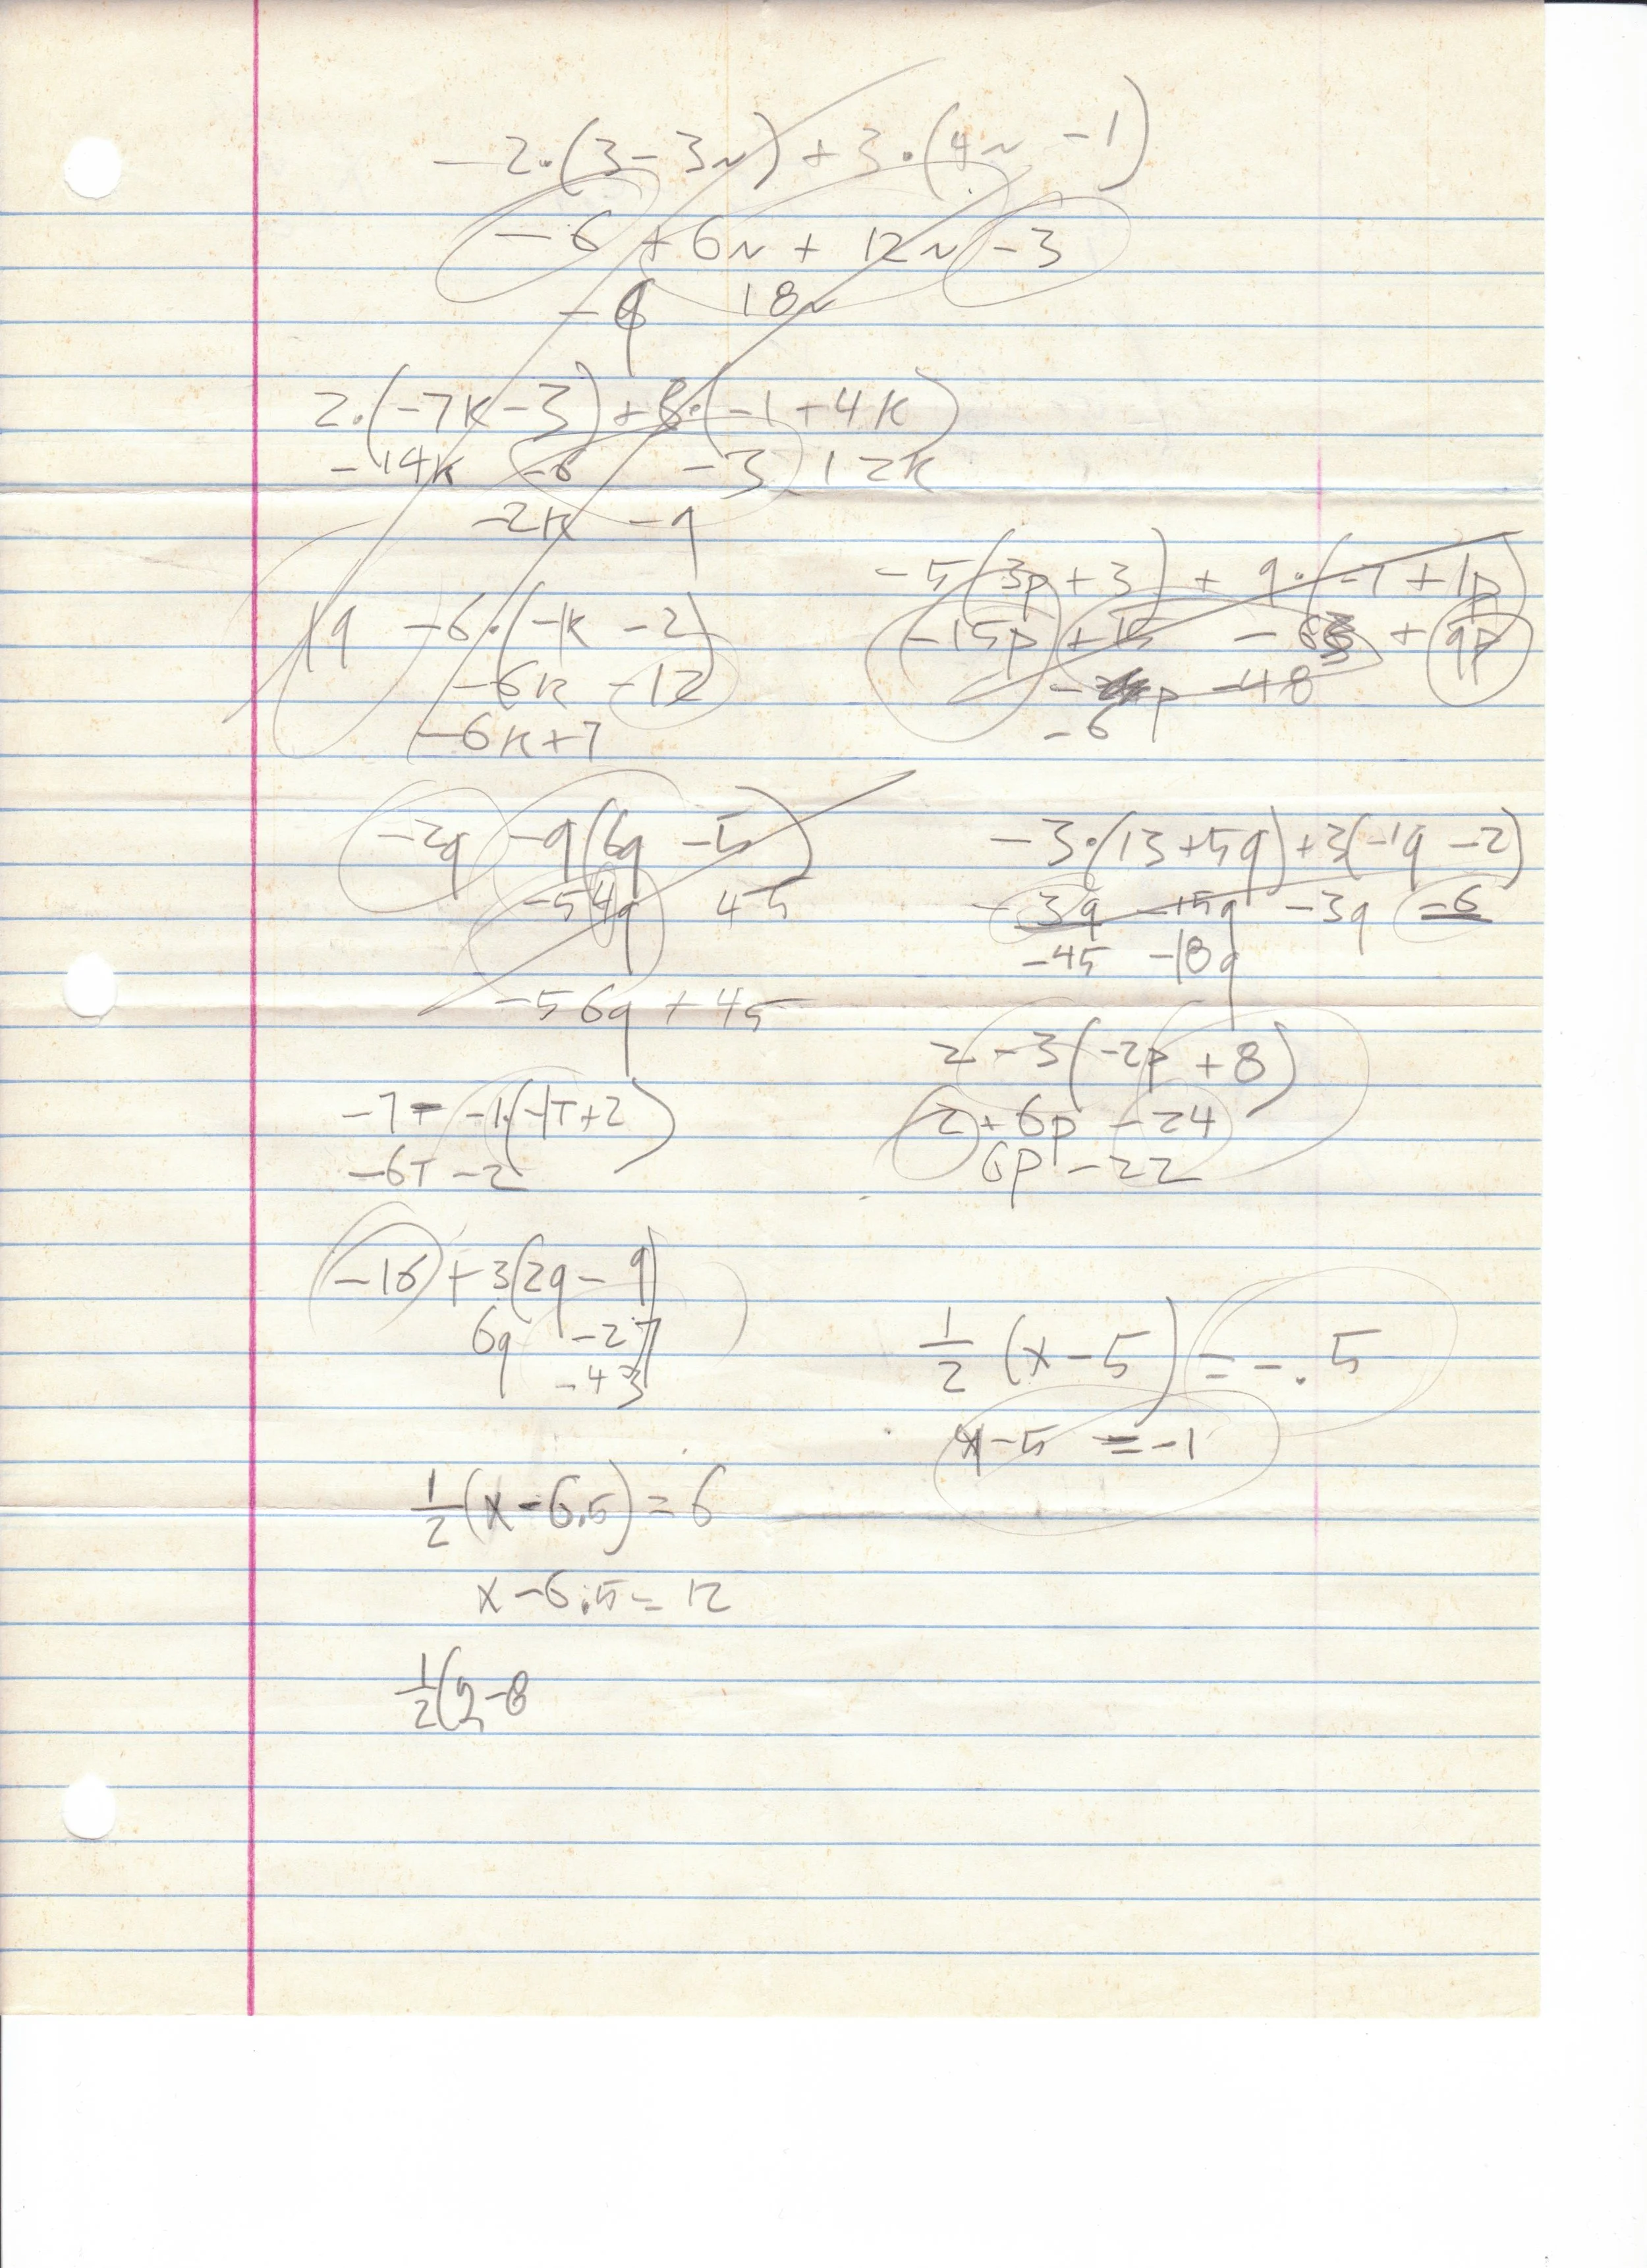 -2·(3-3n)+3·(4n-1)
-6+6n+12n-3
-9 18n
2·(-7k-3)+3·(-1+4k)
-14k -6 -3 12k
-2k -9
19 -6·(-k-2)
-6k -12
-6k+7
-5(3p+3)+9·(-7+1p)
-15p+15 -63+9p
-p -48
-6
-2q -9(6q-5)
-54q 45
-56q+45
-3·(13+5q)+3(-1q-2)
-39 -15q -3q -6
-45 -18q
2-3(-2p+8)
2+6p-24
6p-22
-7T -1·(-1T+2)
-6T-2
-16+3(2q-9)
6q -27
-43
1/2(x-5)=-.5
x-5=-1
1/2(x-6.5)=6
x-6.5=12
1/2(2-8